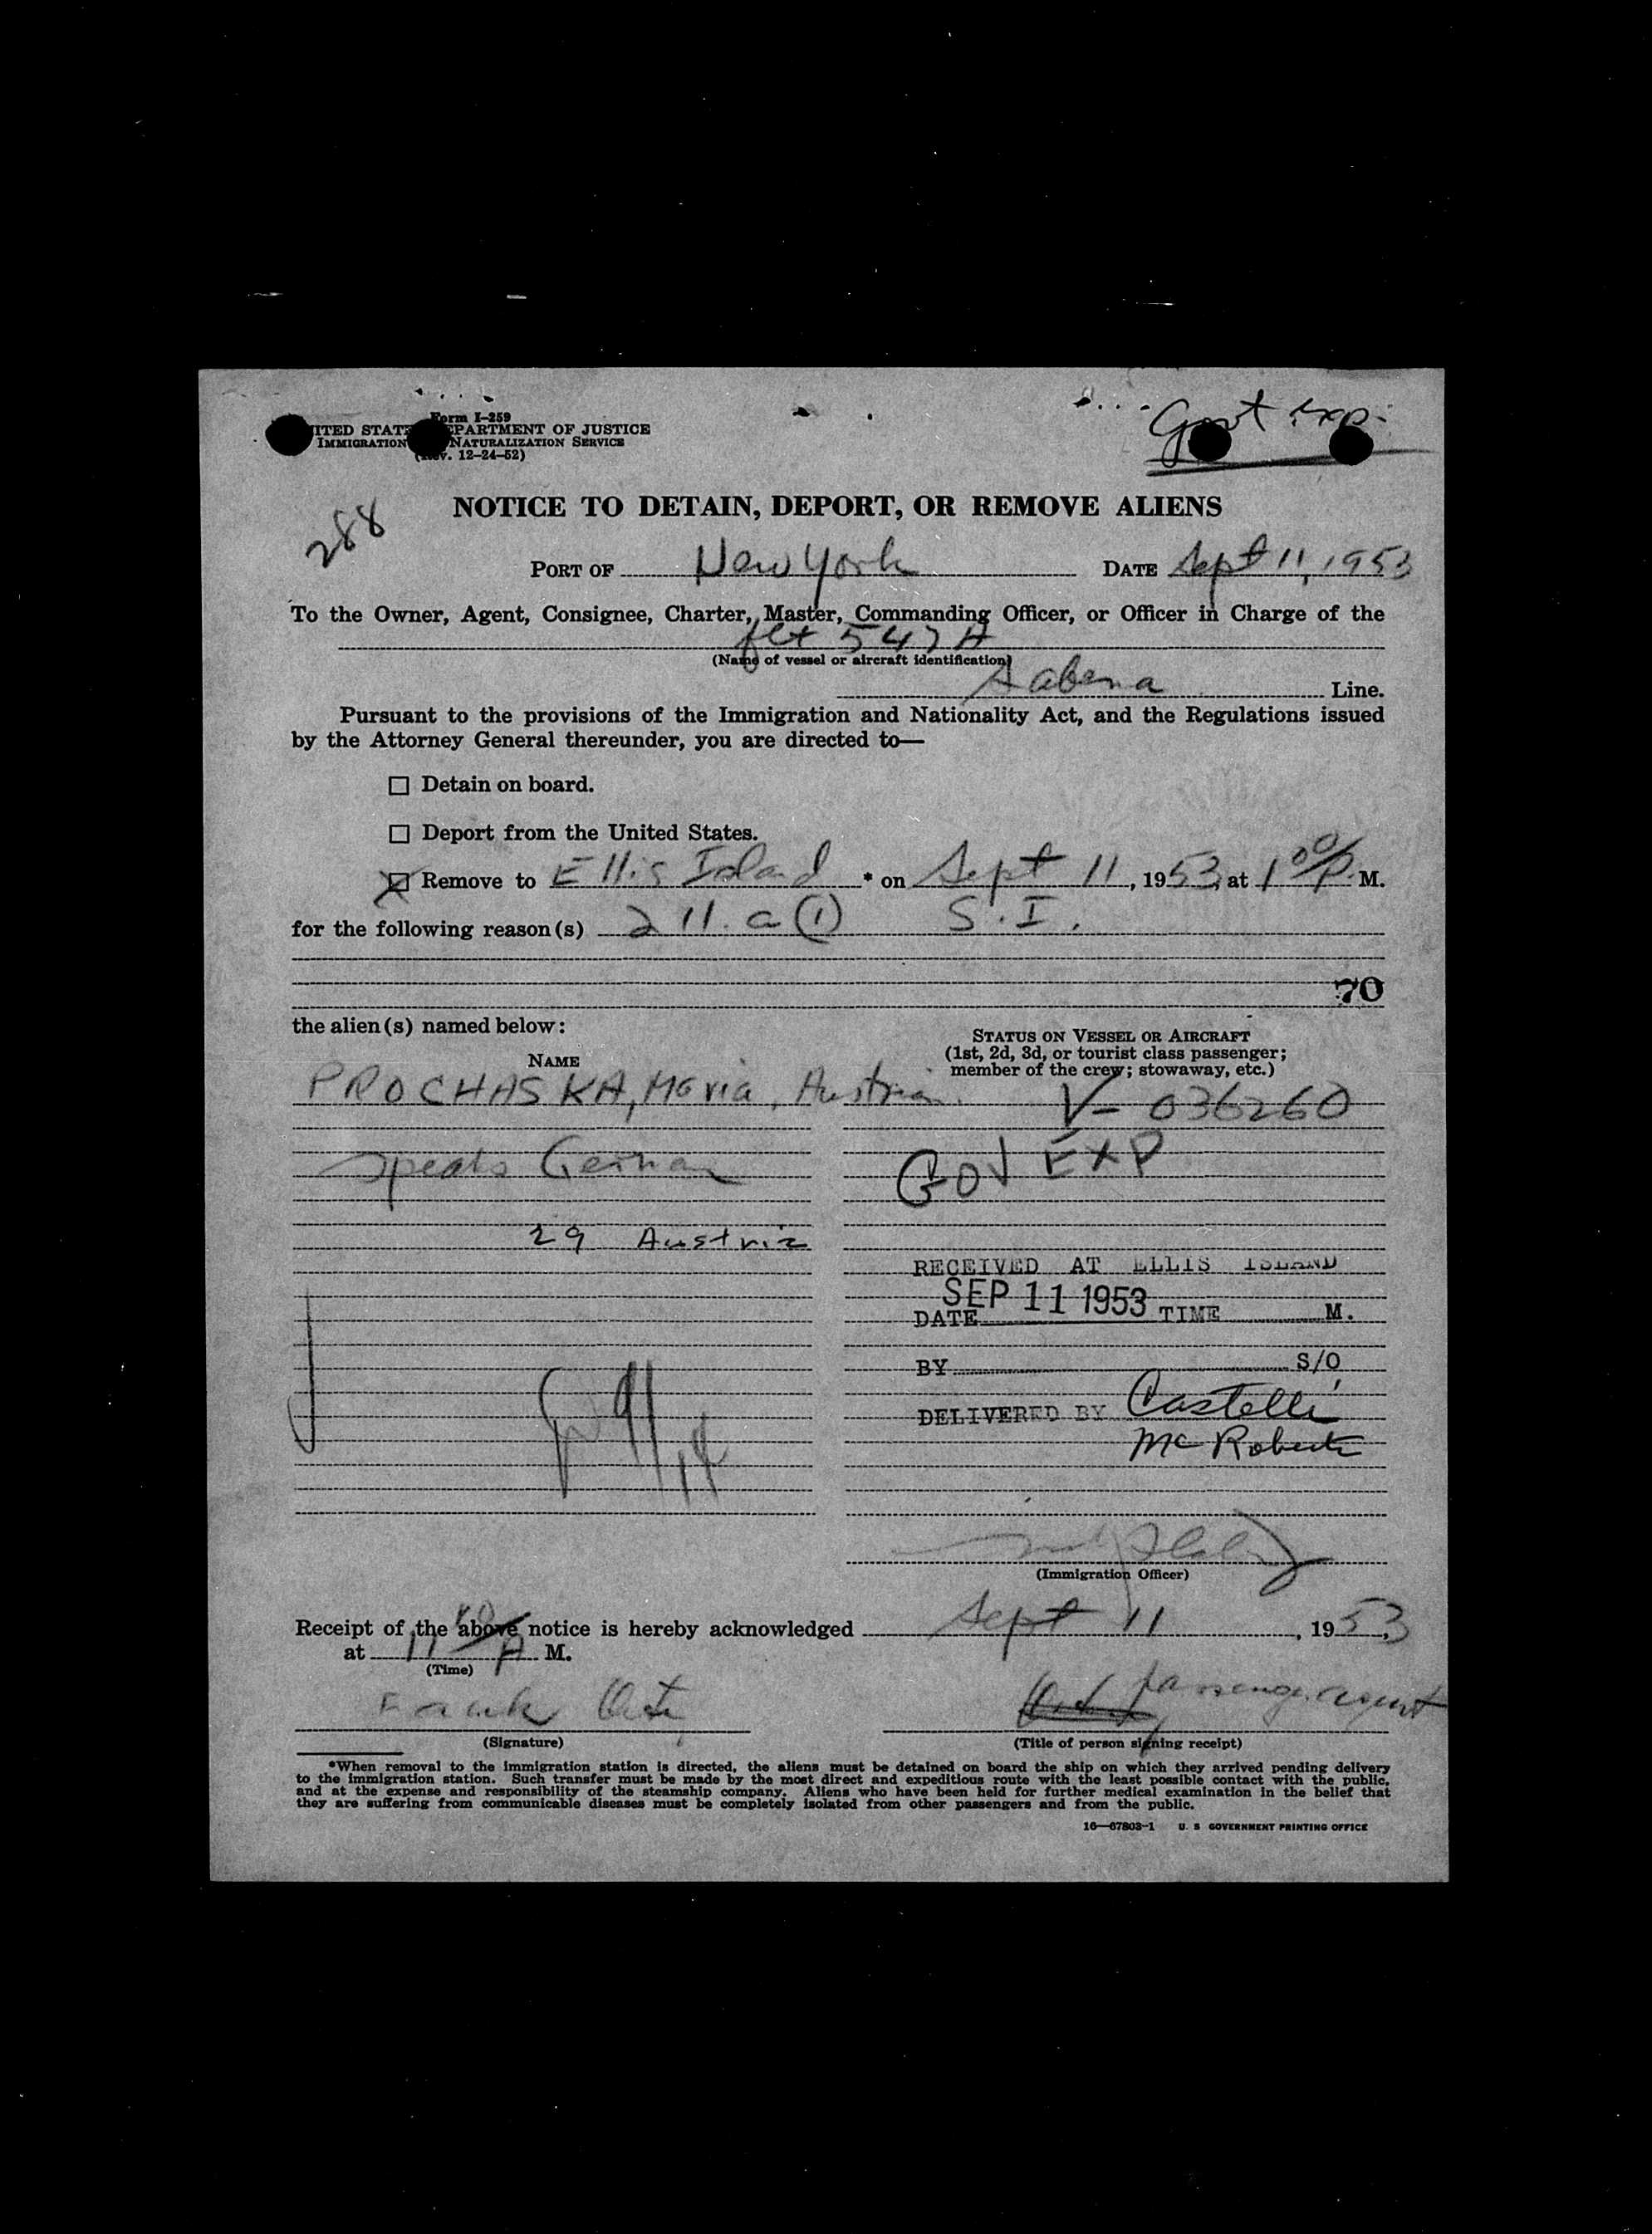 Form I-259
UNITED STATES DEPARTMENT OF JUSTICE
IMMIGRATION NATURALIZATION SERVICE
(Rev. 12-24-52)
Govt Exp.
288
NOTICE TO DETAIN, DEPORT, OR REMOVE ALIENS
PORT OF New York DATE Sept 11, 1953
To the Owner, Agent, Consignee, Charter, Master, Commanding Officer, or Officer in Charge of the
flt 547 A
(Name of vessel or aircraft identification)
Sabena Line.
Pursuant to the provisions of the Immigration and Nationality Act, and the Regulations issued
by the Attorney General thereunder, you are directed to—
☐ Detain on board.
☐ Deport from the United States.
☒ Remove to Ellis Island * on Sept 11, 1953, at 1 00/P. M.
for the following reason(s) 211.a(1) S.I.
70
the alien(s) named below:
NAME
STATUS ON VESSEL OR AIRCRAFT
(1st, 2d, 3d, or tourist class passenger;
member of the crew; stowaway, etc.)
PROCHASKA, Maria, Austrian. V- 036260
speaks German GOV EXP
29 Austria
RECEIVED AT ELLIS ISLAND
DATE SEP 11 1953 TIME M.
BY S/O
DELIVERED BY Castelli
McRoberts
(Immigration Officer)
Receipt of the above notice is hereby acknowledged Sept 11, 1953,
at 11 A M.
(Time)
Frank passenger agent
(Signature) (Title of person signing receipt)
*When removal to the immigration station is directed, the aliens must be detained on board the ship on which they arrived pending delivery
to the immigration station. Such transfer must be made by the most direct and expeditious route with the least possible contact with the public,
and at the expense and responsibility of the steamship company. Aliens who have been held for further medical examination in the belief that
they are suffering from communicable diseases must be completely isolated from other passengers and from the public.
16—67803-1 U. S GOVERNMENT PRINTING OFFICE